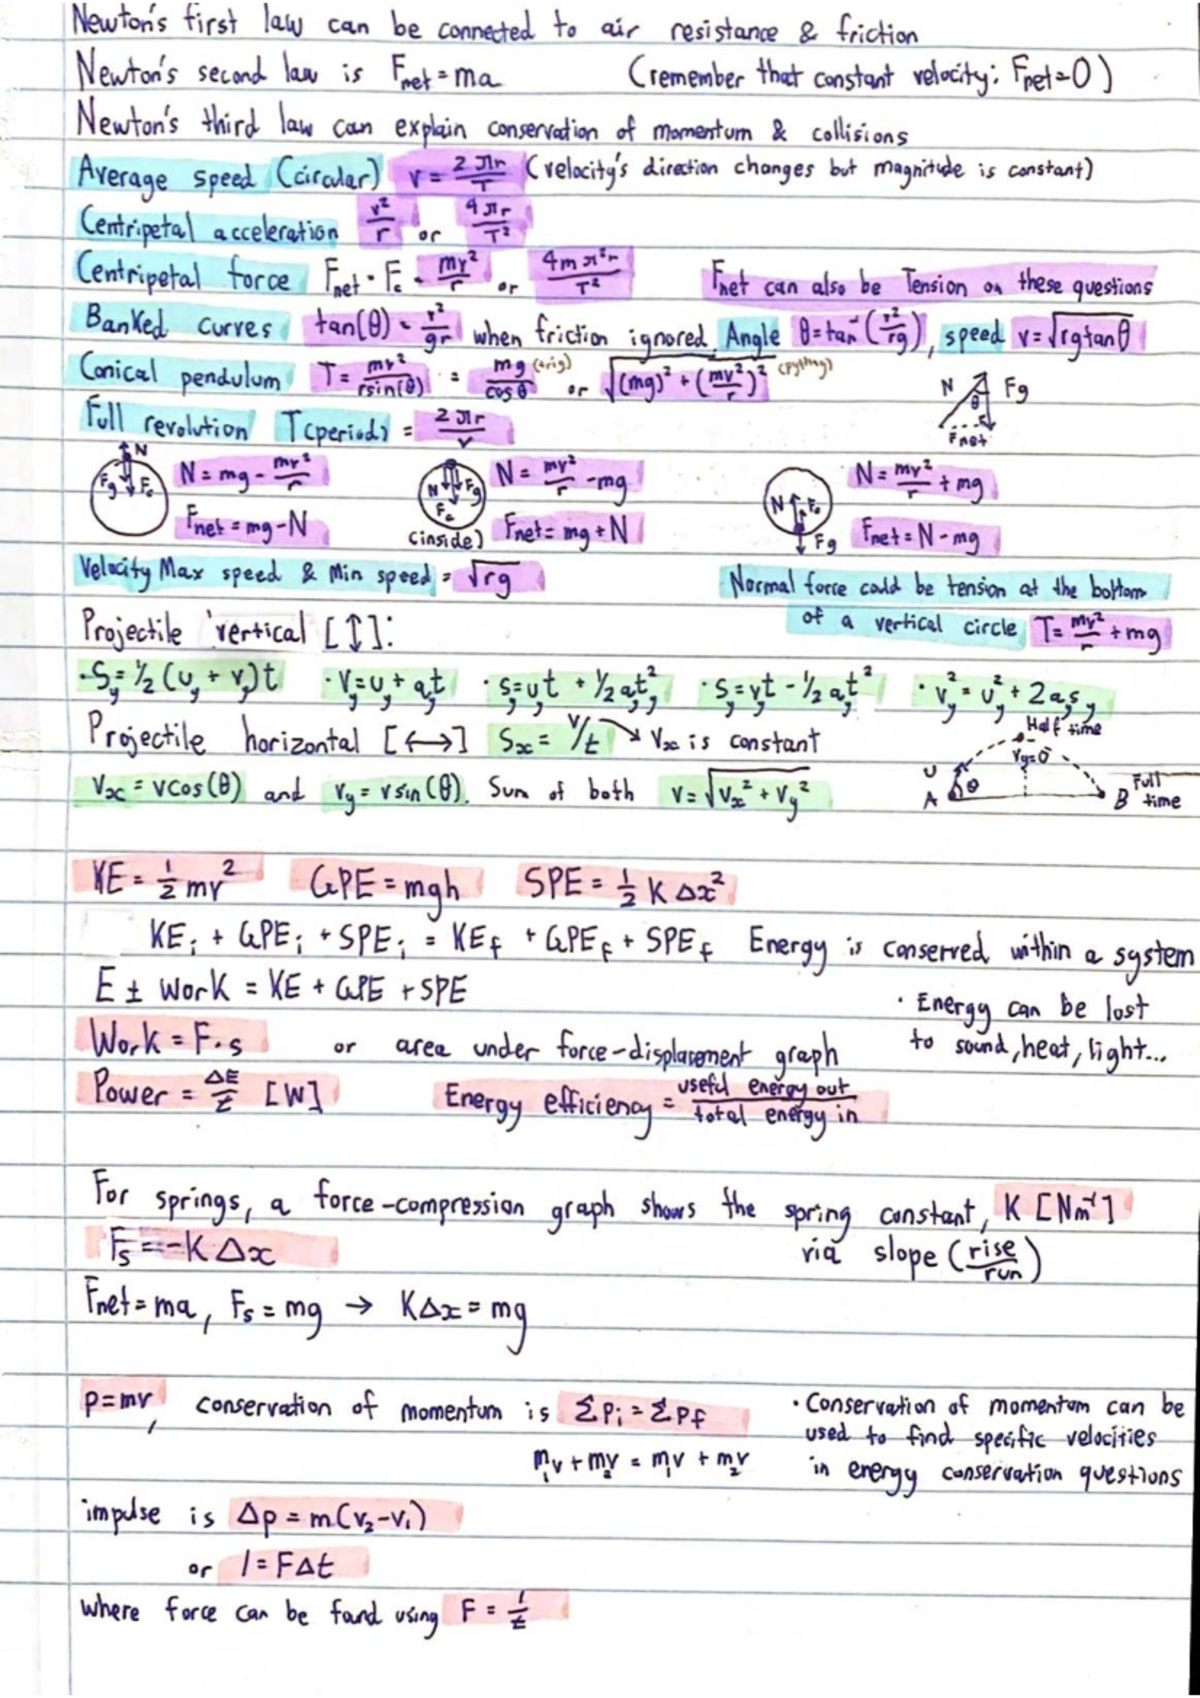 Newton's first law can be connected to air resistance & friction
Newton's second law is Fnet = ma (remember that constant velocity: Fnet=0)
Newton's third law can explain conservation of momentum & collisions
Average speed (circular) v = 2πr/T (velocity's direction changes but magnitude is constant)
Centripetal acceleration v²/r or 4πr/T²
Centripetal force Fnet = Fc = mv²/r or 4mπ²r/T² Fnet can also be Tension on these questions
Banked curves tan(θ) = v²/gr when friction ignored. Angle θ=tan⁻(v²/rg), speed v=√rgtanθ
Conical pendulum T = mv²/rsin(θ) = mg/cosθ (trig) or √(mg)² + (mv²/r)² (pythag)
N θ Fg Fnet
Full revolution T(period) = 2πr/v
N Fg Fc N = mg - mv²/r N Fg Fc N = mv²/r - mg N Fc Fg N = mv²/r + mg
Fnet = mg - N (inside) Fnet = mg + N Fnet = N - mg
Velocity Max speed & Min speed = √rg Normal force could be tension at the bottom
of a vertical circle T = mv²/r + mg
Projectile vertical [↕]:
·Sy = ½(uy + vy)t ·Vy = uy + ayt ·sy = uyt + ½ayt² ·sy = vyt - ½ayt² ·vy² = uy² + 2aysy
Projectile horizontal [↔] Sx = V/t → Vx is constant
Half time Vy=0 U A θ B Full time
Vx = vcos(θ) and vy = vsin(θ). Sum of both v = √vx² + vy²
KE = ½mv² GPE = mgh SPE = ½KΔx²
KEi + GPEi + SPEi = KEf + GPEf + SPEf Energy is conserved within a system
E ± Work = KE + GPE + SPE
· Energy can be lost
to sound, heat, light...
Work = F·s or area under force-displacement graph
Power = ΔE/t [W] Energy efficiency = useful energy out/total energy in
For springs, a force-compression graph shows the spring constant, K [Nm⁻¹]
via slope (rise/run)
Fs = -KΔx
Fnet = ma, Fs = mg → KΔx = mg
p=mv, conservation of momentum is Σpi = Σpf
m₁v + m₂v = m₁v + m₂v
· Conservation of momentum can be
used to find specific velocities
in energy conservation questions
impulse is Δp = m(v₂-v₁)
or I = FΔt
where force can be found using F = I/t